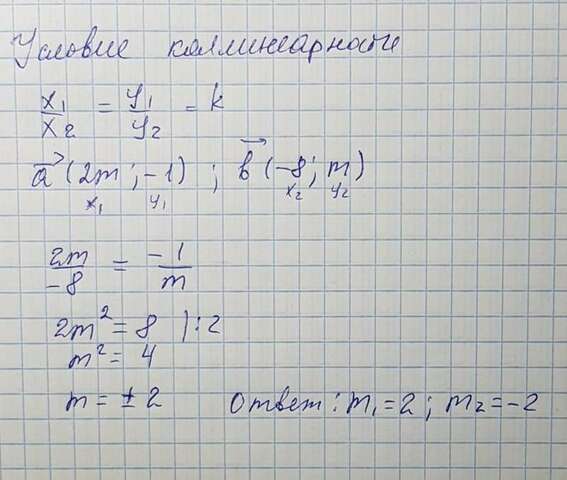 Условие коллинеарности
x₁/x₂ = y₁/y₂ = k
a⃗ (2m ; -1) ; b⃗ (-8; m)
x₁ y₁ x₂ y₂
2m/-8 = -1/m
2m² = 8 | : 2
m² = 4
m = ± 2 Ответ: m₁=2; m₂=-2